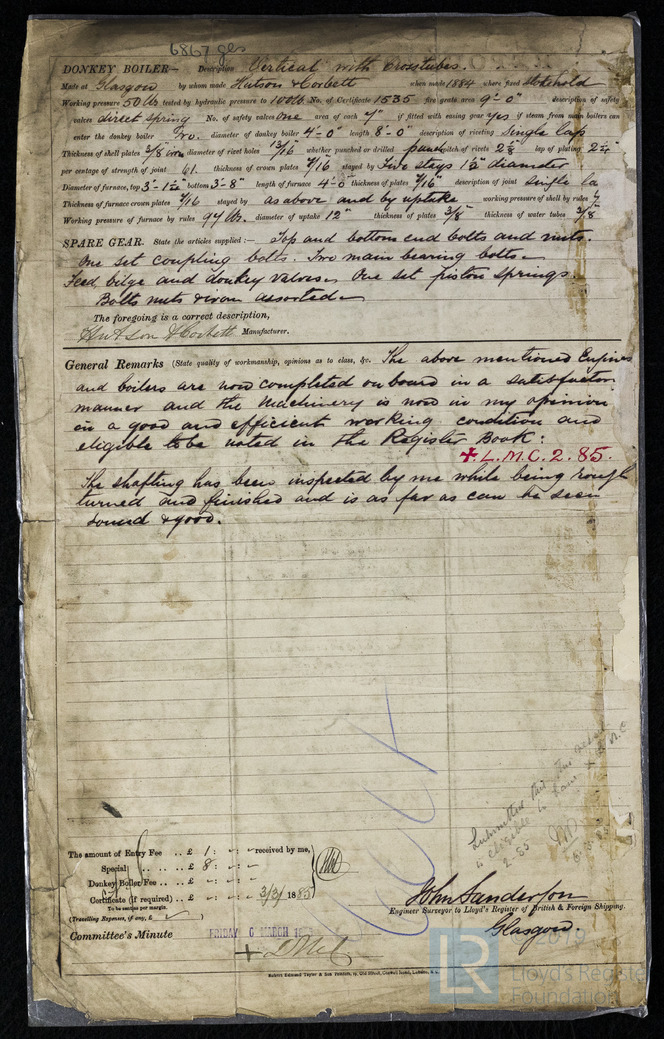 6867 gls
DONKEY BOILER— Description Vertical with Crosstubes.
Made at Glasgow by whom made Hutson & Corbett when made 1884 where fixed Stokehold
Working pressure 50 lbs tested by hydraulic pressure to 100 lb. No. of Certificate 1535 fire grate area 9'-0" description of safety
valves direct spring No. of safety valves one area of each 7" if fitted with easing gear yes if steam from main boilers can
enter the donkey boiler no. diameter of donkey boiler 4'-0" length 8'-0" description of riveting Single lap
Thickness of shell plates 3/8 iron diameter of rivet holes 13/16 whether punched or drilled punch pitch of rivets lap of plating
per centage of strength of joint 61. thickness of crown plates 7/16 stayed by Five stays 1½ diameter
Diameter of furnace, top bottom 3'-8" length of furnace 4'-0 thickness of plates 7/16" description of joint single la
Thickness of furnace crown plates 7/16 stayed by as above and by uptake working pressure of shell by rules 7
Working pressure of furnace by rules 94 lbs. diameter of uptake 12" thickness of plates 3/8" thickness of water tubes 3/8
SPARE GEAR. State the articles supplied:— Top and bottom end bolts and nuts.
One set coupling bolts. Two main bearing bolts.
Feed, bilge and donkey valves. One set piston springs.
Bolts nuts & iron assorted
The foregoing is a correct description,
Hutson & Corbett Manufacturer.
General Remarks (State quality of workmanship, opinions as to class, &c. The above mentioned Engines
and boilers are now completed on board in a satisfactory
manner and the Machinery is now in my opinion
in a good and efficient working condition and
eligible to be noted in the Register Book:
+ L.M.C. 2.85.
The shafting has been inspected by me while being rough
turned and finished and is as far as can be seen
sound & good.
Submitted that this
is eligible to have
2 85
The amount of Entry Fee .. £ 1 : - - received by me,
Special .. .. £ 8 : - -
Donkey Boiler Fee .. .. £ - : - -
Certificate (if required) .. £ - : - - 3/3/ 1885
To be sent as per margin.
(Travelling Expenses, if any, £ )
John Sanderson
Engineer Surveyor to Lloyd's Register of British & Foreign Shipping.
Glasgow.
Committee's Minute FRIDAY 6 MARCH
+ LMC
LR
Lloyd's Register
Foundation